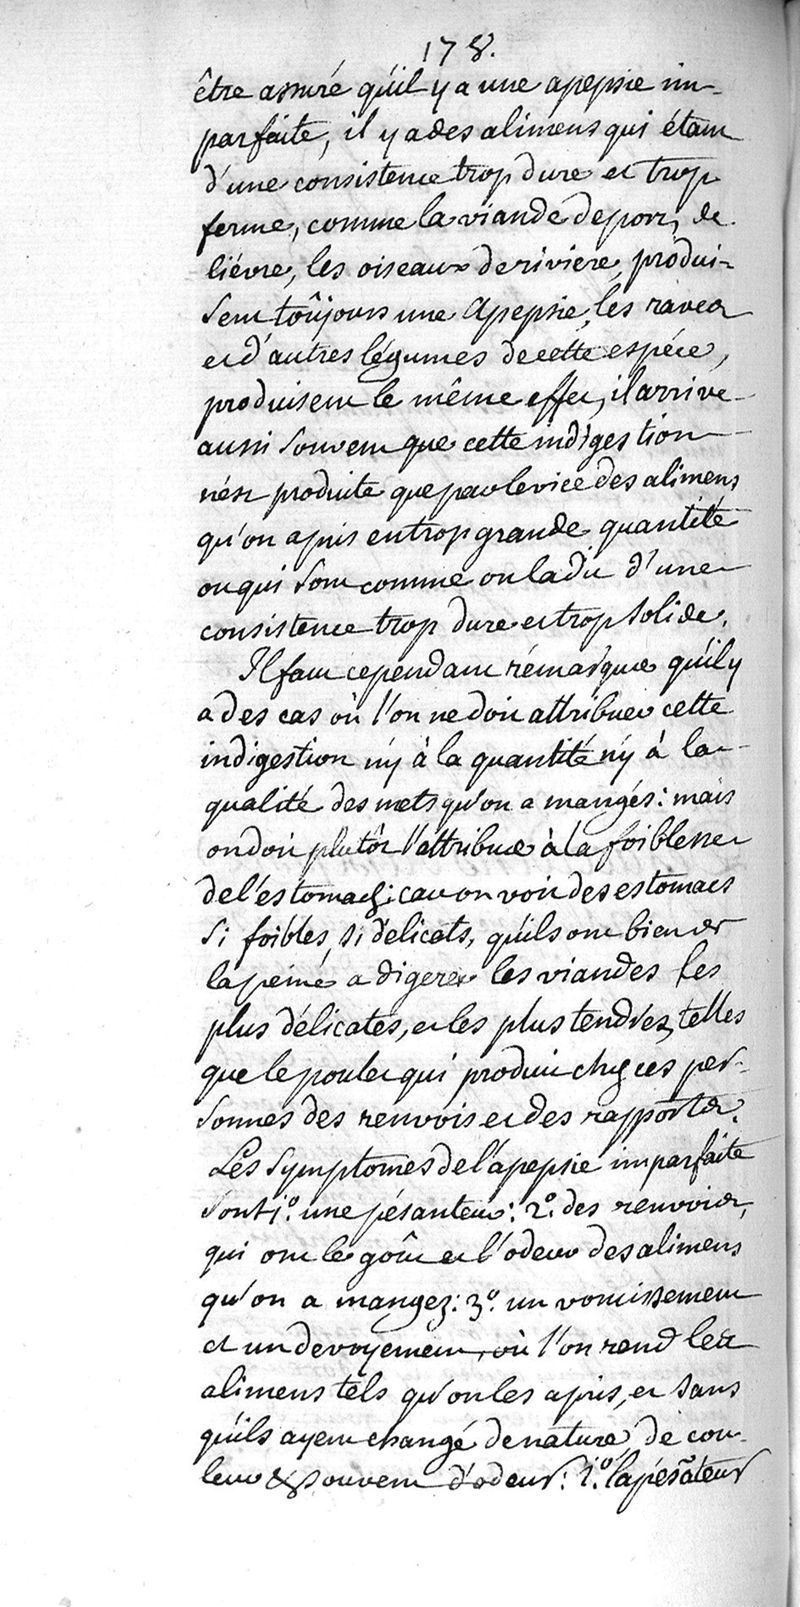 178.
être assuré qu'il y a une apepsie im-
parfaite, il y a des alimens qui étant
d'une consistence trop dure et trop
ferme, comme la viande de porc, de
liévre, les oiseaux de riviere, produi-
sent toûjours une apepsie, les raves
et d'autres légumes de cette espéce,
produisent le même effet, il arrive
aussi souvent que cette indigestion
n'ést produite que par le vice des alimens
qu'on a pris en trop grande quantité
ou qui sont comme on la dit d'une
consistence trop dure et trop solide.
Il faut cependant rémarquer qu'il y
a des cas où l'on ne doit attribuer cette
indigestion n'y à la quantité n'y à la
qualité des mets qu'on a mangés: mais
on doit plutôt l'attribuer à la foiblesse
de l'éstomach; car on voit des estomacs
si foibles, si délicats, qu'ils ont bien de
la peine a digerer les viandes les
plus délicates, et les plus tendres, telles
que le poulet qui produit chez ces per-
sonnes des renvois et des rapports.
Les symptomes de l'apepsie imparfaite
sont 1.º une pésanteur: 2.º des renvois,
qui ont le goût et l'odeur des alimens
qu'on a mangez: 3.º un vomissement
et un devoyement, où l'on rend les
alimens tels qu'on les a pris, et sans
qu'ils ayent changé de nature, de cou-
leur & souvent d'odeur: 1.º la pésateur